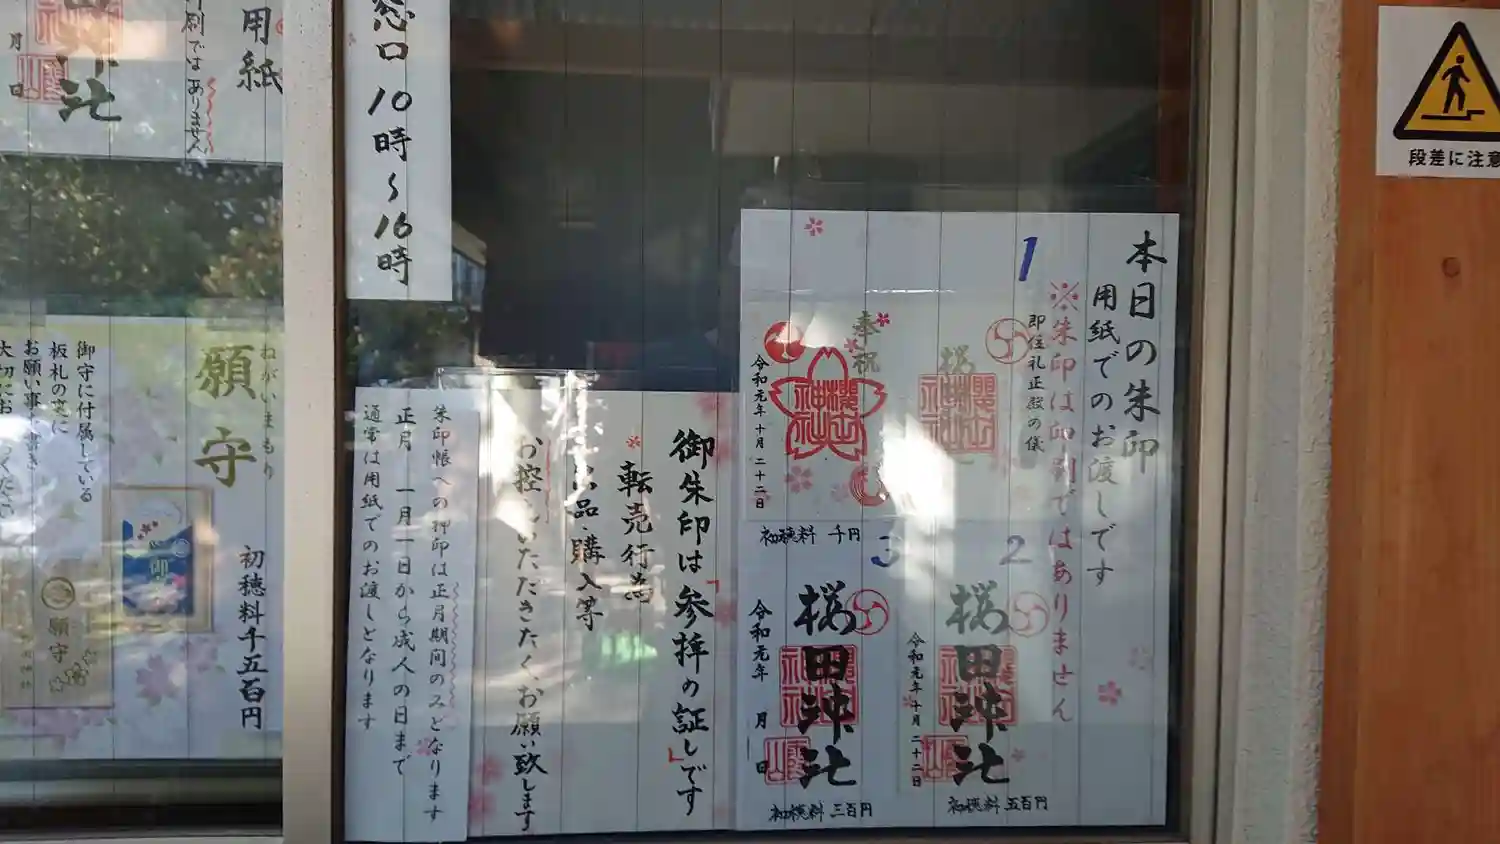 本日の朱印
用紙でのお渡しです
※朱印は印刷ではありません
1
即位礼正殿の儀
奉祝
櫻田神社
令和元年十月二十二日
初穂料 千円
2
桜田神社
令和元年十月二十二日
初穂料 五百円
3
桜田神社
令和元年 月 日
初穂料 三百円
御朱印は「参拝の証し」です
転売行為
品購入等
お控えいただきたくお願い致します
朱印帳への押印は正月期間のみとなります
正月 一月一日から成人の日まで
通常は用紙でのお渡しとなります
窓口 10時〜16時
用紙
刷ではありません
月 日
ねがいまもり
願守
初穂料千五百円
御守に付属している
板札の窓に
お願い事を書き
大切にお
願守
段差に注意